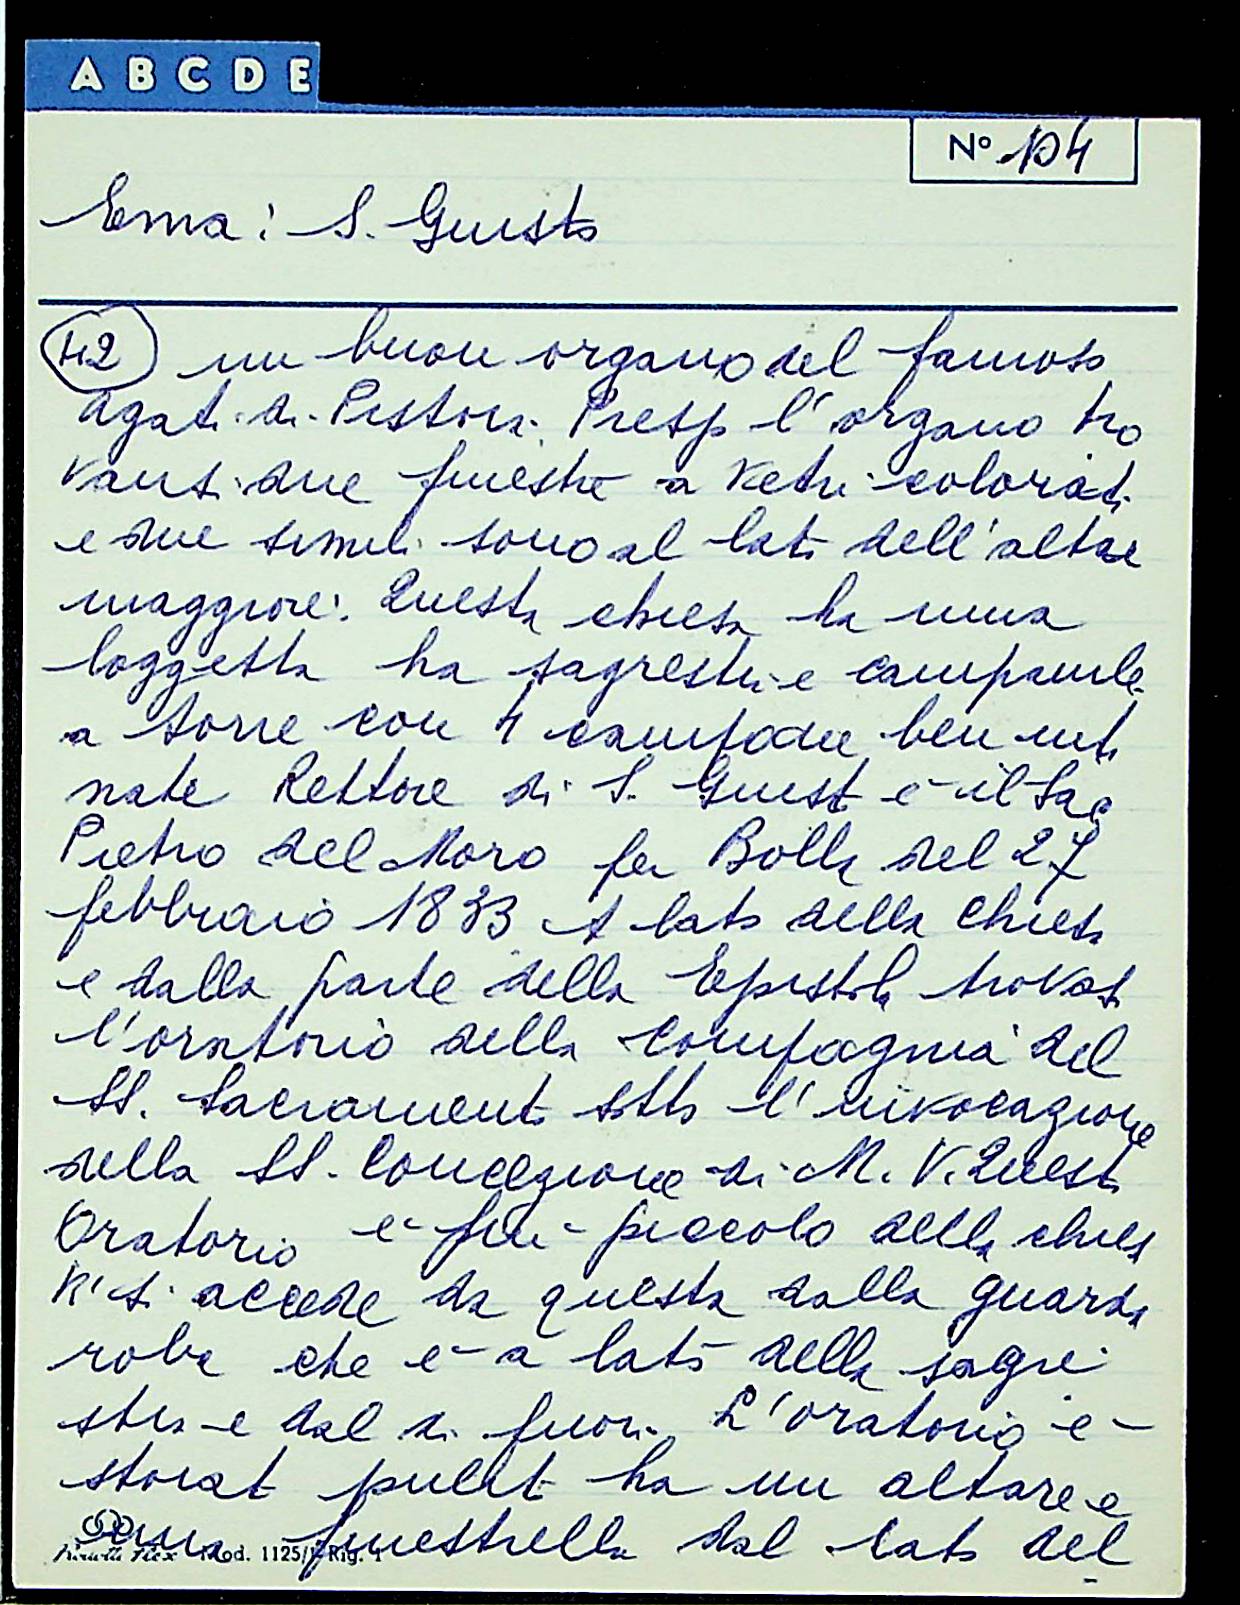 A B C D E
Nº 104
Ema: S. Giusto
42 un buon organo del famoso
Agati di Pistoia. Presso l'organo tro
vansi due finestre a vetri colorati
e due simili sono al lati dell'altare
maggiore. Questa chiesa ha una
loggetta ha sagrestia e campanile
a torre con 4 campane ben into
nate Rettore di S. Giusto è il Sac
Pietro del Moro per Bolla del 27
febbraio 1833 A lato della chiesa
e dalla parte della Epistola trovasi
l'oratorio della Compagnia del
SS. Sacramento sotto l'invocazione
della SS. Concezione di M. V. Questo
Oratorio è più piccolo della chiesa
Vi si accede da questa dalla guarda
roba che è a lato della sagre
stia e dal di fuori. L'oratorio è
stoiato pulito ha un altare e
una finestrella dal lato del
Mod. 1125/1 Rig. 1